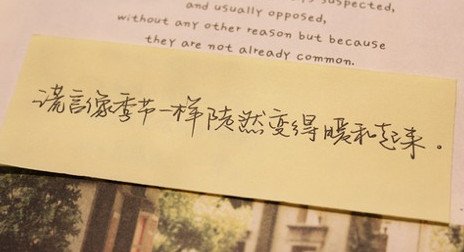 suspected,
and usually opposed,
without any other reason but because
they are not already common.
谎言像季节一样陡然变得暖和起来。